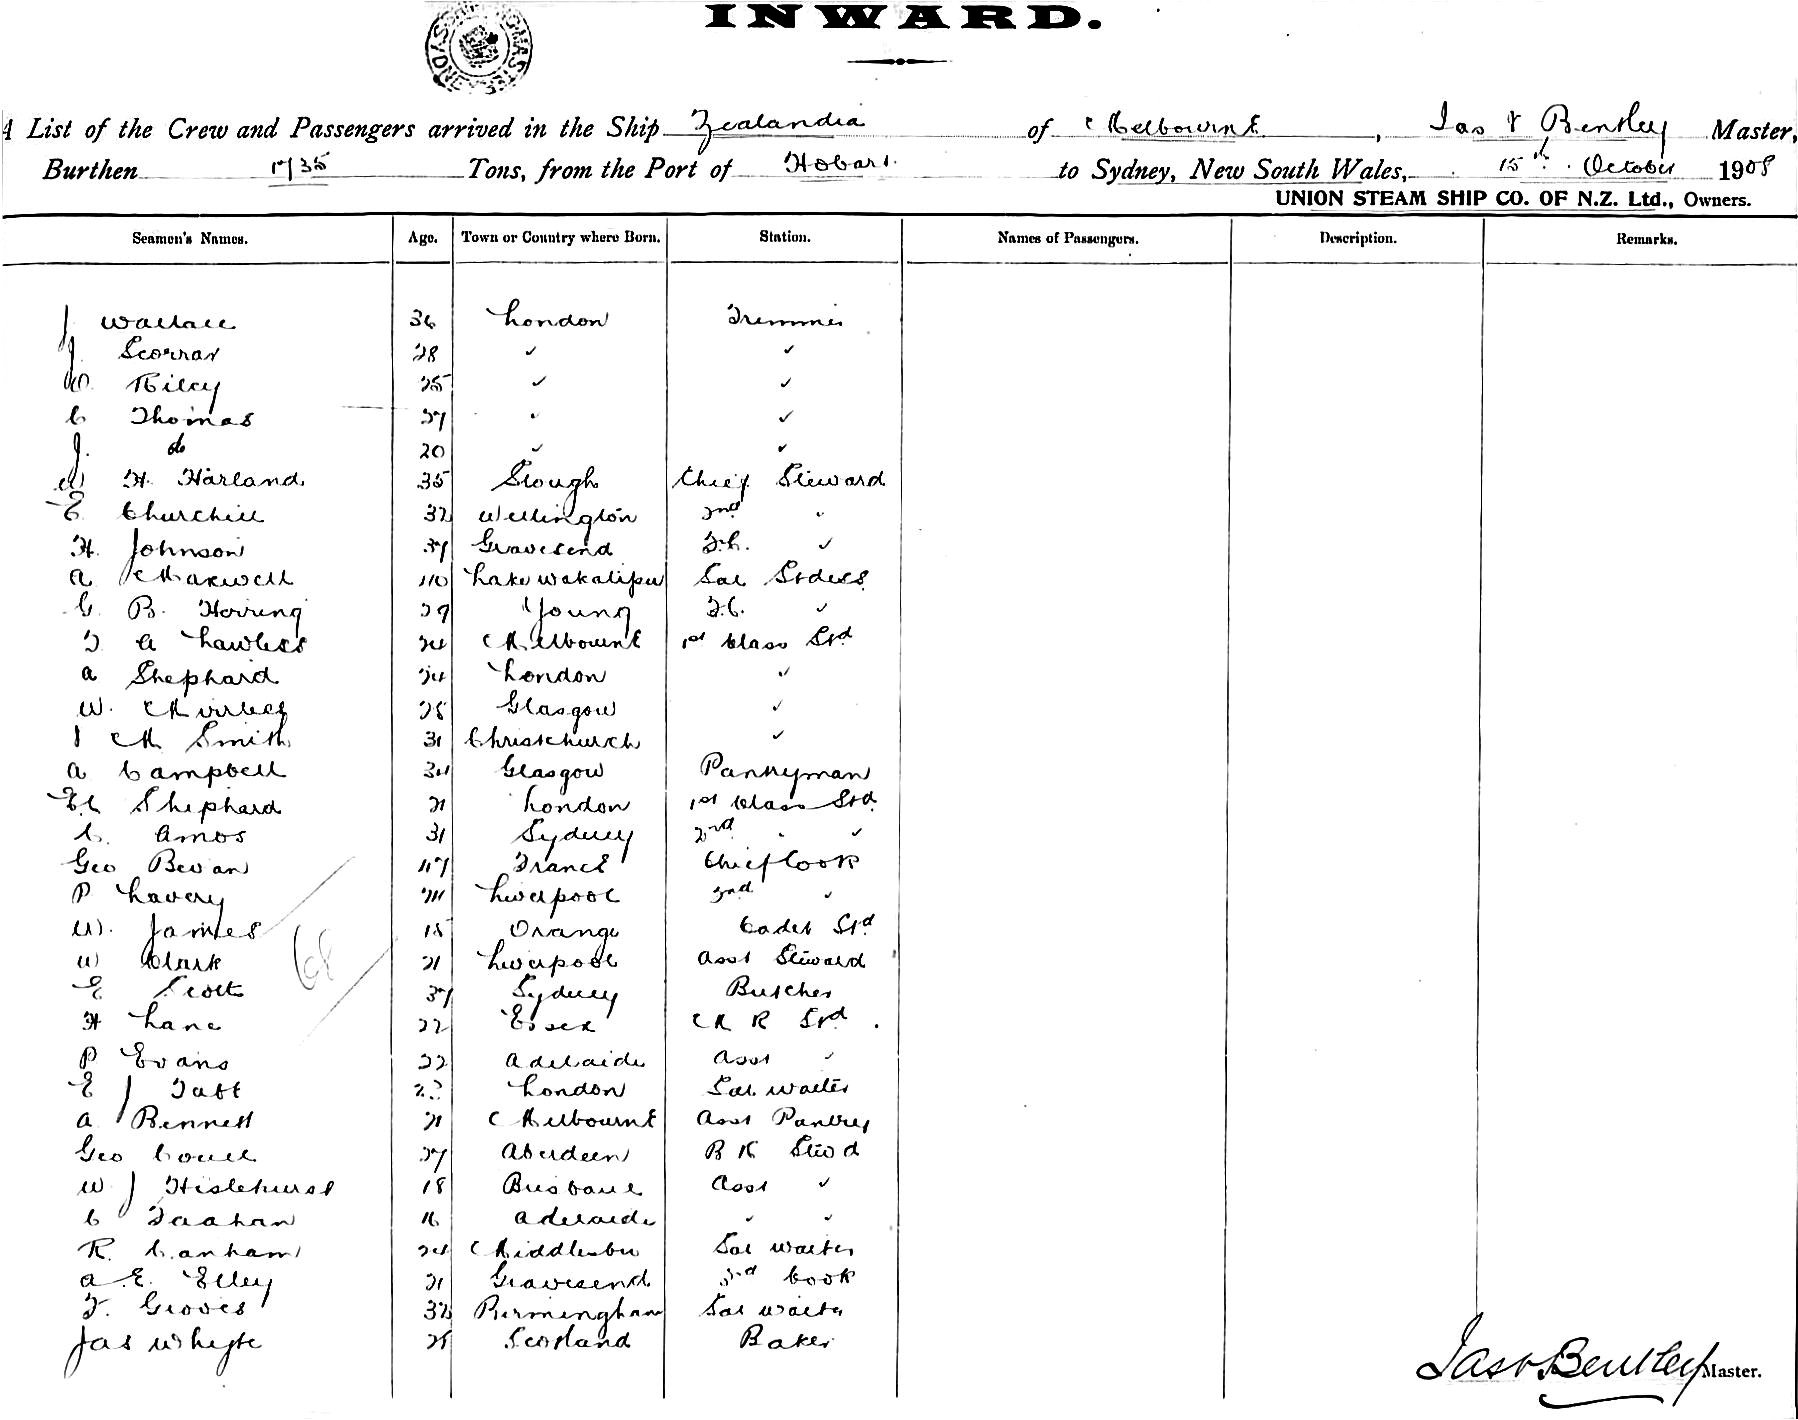 INWARD.
A List of the Crew and Passengers arrived in the Ship Zealandia of Melbourne, Jas Bentley Master,
Burthen 1735 Tons, from the Port of Hobart. to Sydney, New South Wales, 15th October 1908
UNION STEAM SHIP CO. OF N.Z. Ltd., Owners.
Seamen's Names. Age. Town or Country where Born. Station. Names of Passengers. Description. Remarks.
J Wallace 36 London Trimmer
J. Scorrar 28 " "
Riley 25 " "
C Thomas 27 " "
J. do 20 " "
H. Harland 35 Slough Chief Steward
E Churchill 32 Wellington 2nd "
H. Johnson 37 Gravesend F.C. "
A Maxwell 40 Lake Sal Stdess
C. B. Herring 29 Young F.C. "
T A Lawless 24 Melbourne 1st Class Std
A Shephard 24 London "
W. 28 Glasgow "
M Smith 31 Christchurch "
A Campbell 34 Glasgow Pantryman
Shephard 21 London 1st Class Std
C. Amos 31 Sydney 2nd " "
Geo Bevan 47 France Chief Cook
P Lavery 24 Liverpool 2nd "
W. James 15 Orange Cadet Std
W Clark 21 Liverpool Asst Steward
E Scott 37 Sydney Butcher
H Lane 22 Essex M R Std.
P Evans 22 Adelaide Asst "
E J Tabt London Sal waiter
A Bennett 21 Melbourne Asst Pantry
Geo 27 Aberdeen B K Stewd
W J Hislehurst 18 Brisbane Asst "
C Taahan 16 Adelaide " "
R Canham 24 Middlesbro Sal waiter
A E. Elley 21 Gravesend 3rd Cook
F. Groves 32 Birmingham Sal waiter
Jas Whyte Scotland Baker
68
Jas Bentley Master.